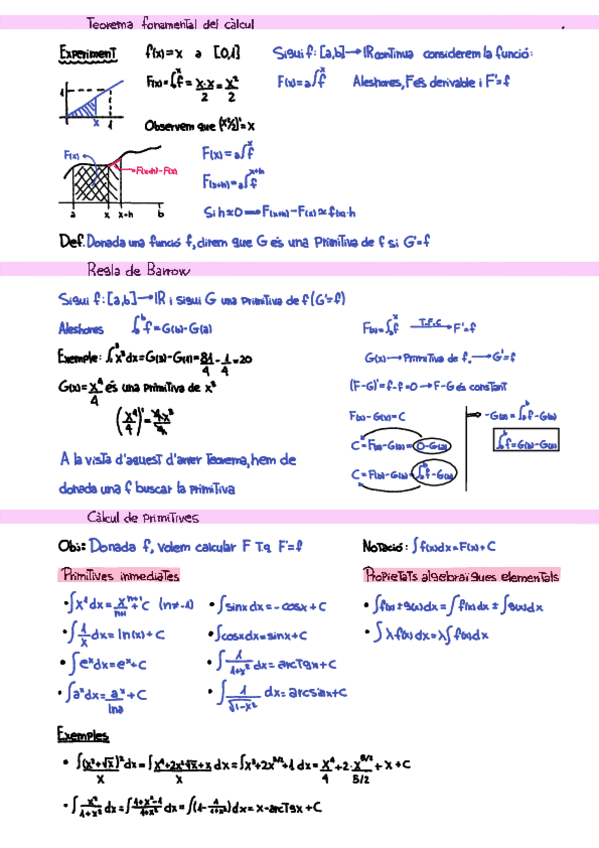 Teorema fonamental del càlcul
Experiment f(x)=x a [0,1]
F(x)=∫₀ˣf = x·x/2 = x²/2
1
x 1
Observem que (x²/2)'=x
Sigui f:[a,b]→ℝ contínua considerem la funció:
F(x)=ₐ∫ˣf Aleshores, F és derivable i F'=f
F(x)
F(x+h)-F(x)
a x x+h b
F(x)=ₐ∫ˣf
F(x+h)=ₐ∫ˣ⁺ʰf
Si h≈0 → F(x+h)-F(x)≈f(x)·h
Def. Donada una funció f, direm que G és una primitiva de f si G'=f
Regla de Barrow
Sigui f:[a,b]→ℝ i sigui G una primitiva de f (G'=f)
Aleshores ∫ₐᵇf=G(b)-G(a)
Exemple: ∫₁³x³dx=G(3)-G(1)=81/4-1/4=20
G(x)=x⁴/4 és una primitiva de x³
(x⁴/4)'=4·x³/4
A la vista d'aquest darrer teorema, hem de
donada una f buscar la primitiva
F(x)=∫ₐˣf T.F.C→ F'=f
G(x)→Primitiva de f.→G'=f
(F-G)'=f-f=0→F-G és constant
F(x)-G(x)=C
C=F(a)-G(a)=0-G(a)
C=F(b)-G(b)=∫ₐᵇf-G(b)
-G(a)=∫ₐᵇf-G(b)
∫ₐᵇf=G(b)-G(a)
Càlcul de primitives
Obj: Donada f, volem calcular F T.q F'=f
Notació: ∫f(x)dx=F(x)+C
Primitives inmediates
•∫xⁿdx=xⁿ⁺¹/n+1+C (n≠-1)
•∫1/x dx=ln(x)+C
•∫eˣdx=eˣ+C
•∫aˣdx=aˣ/lna+C
•∫sinx dx=-cosx+C
•∫cosxdx=sinx+C
•∫1/1+x² dx=arcTgx+C
•∫1/√1-x² dx=arcsinx+C
Propietats algebraiques elementals
•∫f(x)±g(x)dx=∫f(x)dx±∫g(x)dx
•∫λf(x)dx=λ∫f(x)dx
Exemples
•∫(x²+√x)²/x dx=∫x⁴+2x²√x+x/x dx=∫x³+2x^3/2+1dx=x⁴/4+2·x^5/2/5/2+x+C
•∫x²/1+x² dx=∫1+x²-1/1+x² dx=∫(1-1/1+x²)dx=x-arcTgx+C